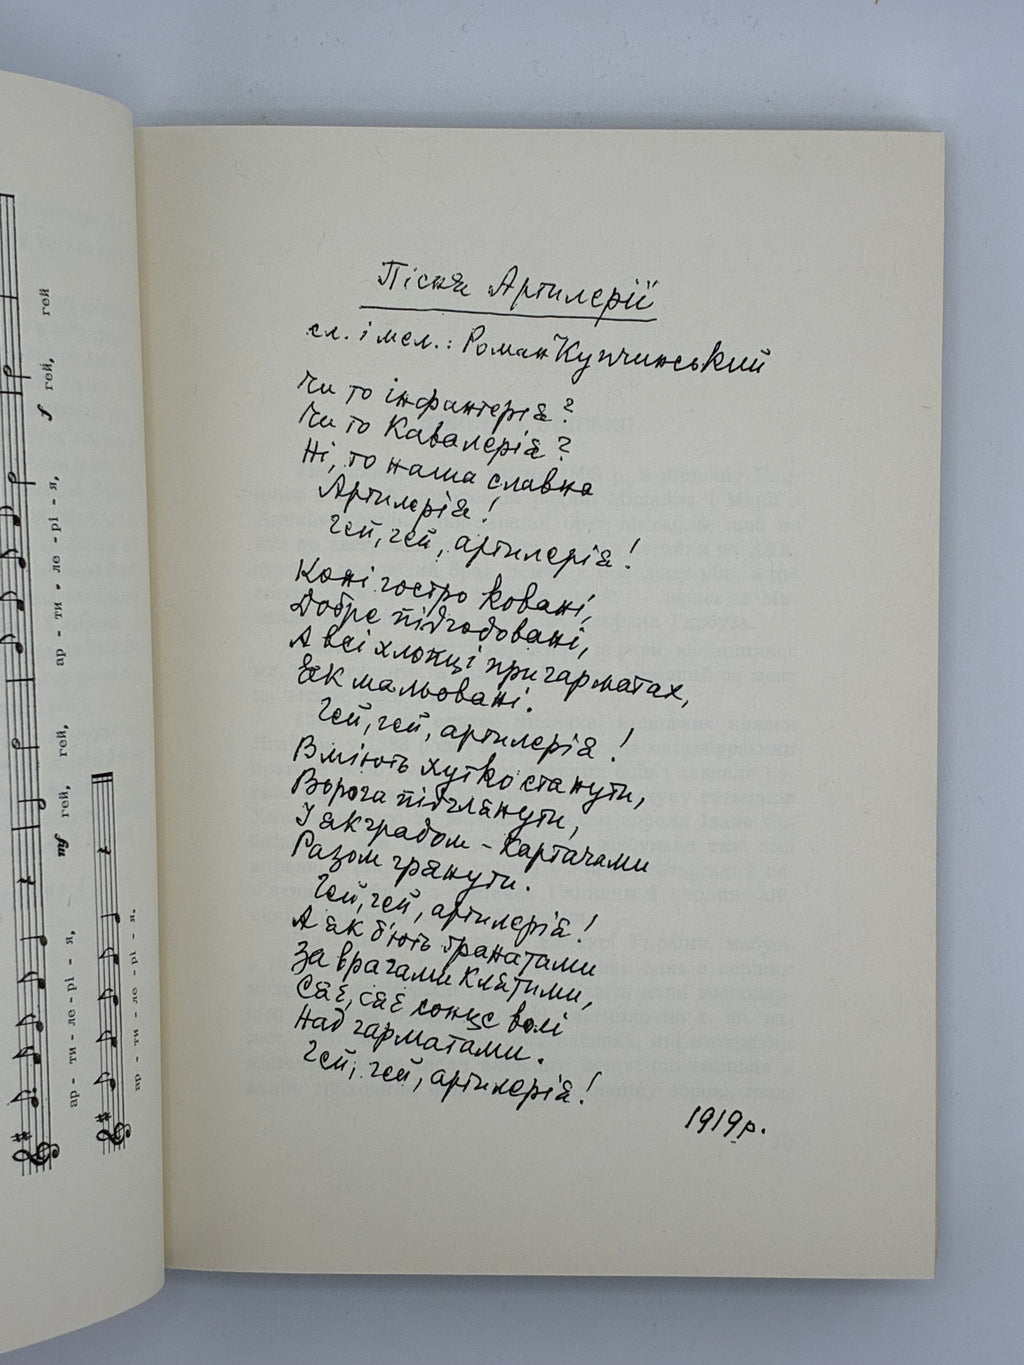 гей, гей
f
ар - ти - ле - рі - я,
гей, гей,
mf
ар - ти - ле - рі - я,
ар - ти - ле - рі - я.
Пісня Артилерії
сл. і мел.: Роман Купчинський
Чи то інфантерія?
Чи то Кавалерія?
Ні, то наша славна
Артилерія!
Гей, гей, артилерія!
Коні гостро ковані,
Добре підгодовані,
А всі хлопці при гарматах,
Як мальовані.
Гей, гей, артилерія!
Вміють хутко станути,
Ворога підглянути,
І як градом - картачами
Разом грянути.
Гей, гей, артилерія!
А як б'ють гранатами
За врагами клятими,
Сяє, сяє сонце волі
Над гарматами.
Гей, гей, артилерія!
1919 р.